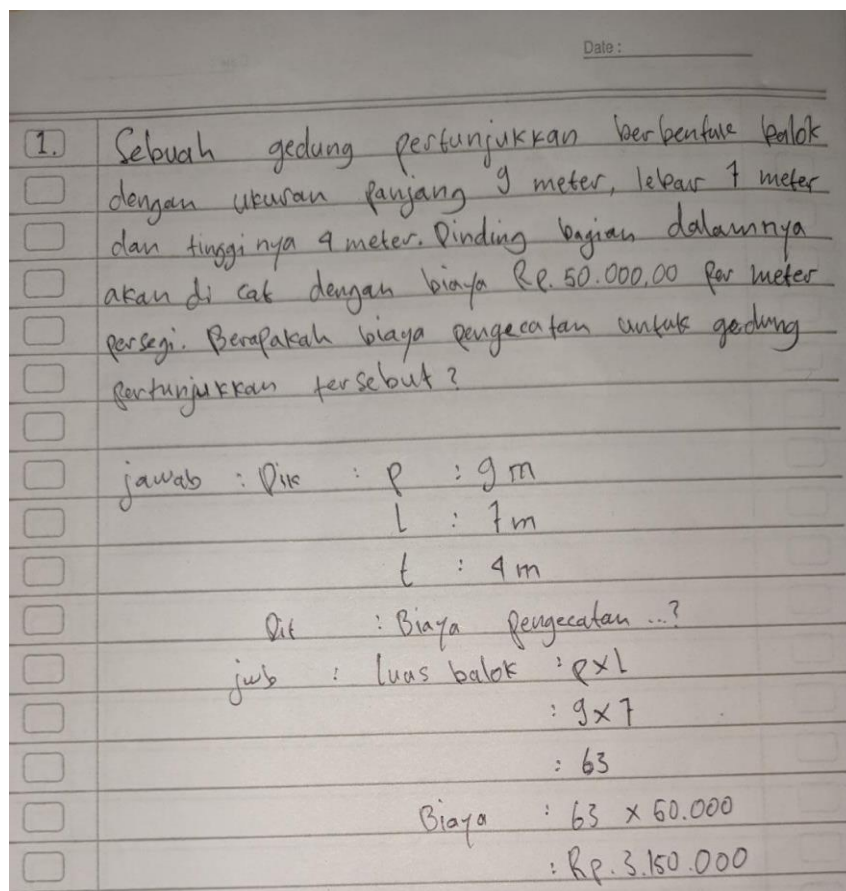 Date :
1. Sebuah gedung pertunjukkan berbentuk balok
dengan ukuran panjang 9 meter, lebar 7 meter
dan tingginya 4 meter. Dinding bagian dalamnya
akan di cat dengan biaya Rp. 50.000,00 per meter
persegi. Berapakah biaya pengecatan untuk gedung
pertunjukkan tersebut?
jawab : Dik : p : 9 m
l : 7 m
t : 4 m
Dit : Biaya pengecatan ...?
jwb : luas balok : p x l
: 9 x 7
: 63
Biaya : 63 x 50.000
: Rp. 3.150.000